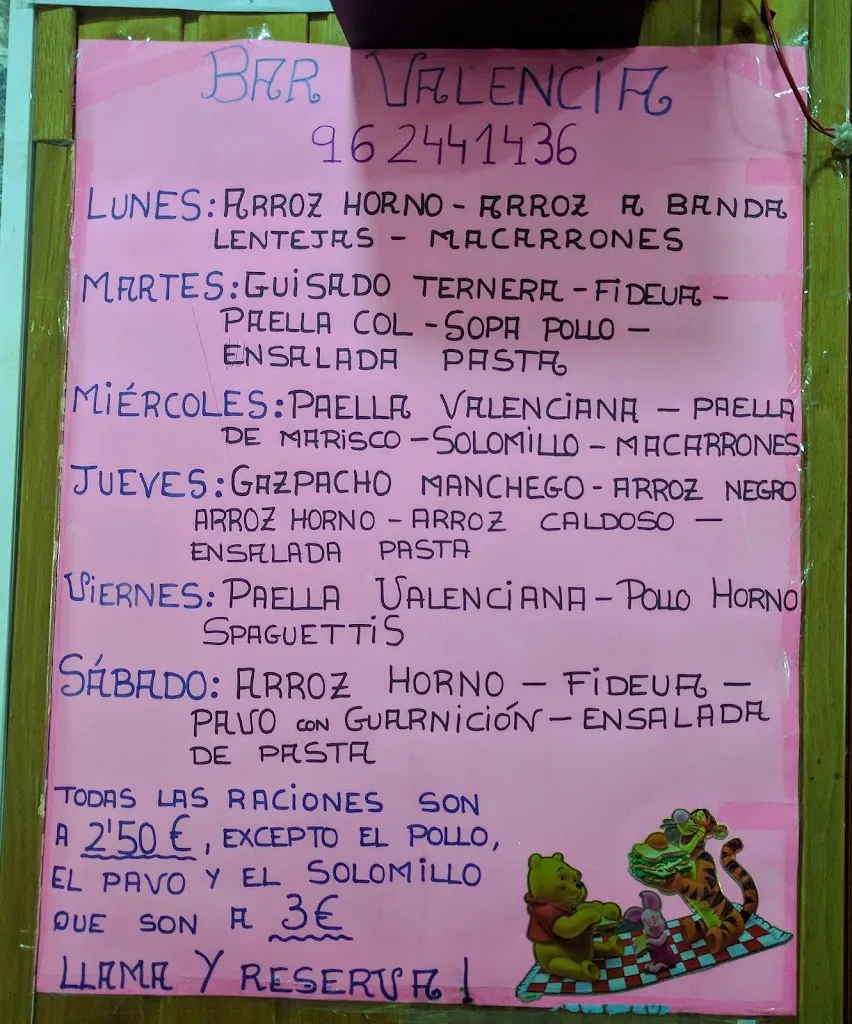 BAR VALENCIA
962441436
LUNES: ARROZ HORNO - ARROZ A BANDA
LENTEJAS - MACARRONES
MARTES: GUISADO TERNERA - FIDEUA -
PAELLA COL - SOPA POLLO -
ENSALADA PASTA
MIÉRCOLES: PAELLA VALENCIANA - PAELLA
DE MARISCO - SOLOMILLO - MACARRONES
JUEVES: GAZPACHO MANCHEGO - ARROZ NEGRO
ARROZ HORNO - ARROZ CALDOSO -
ENSALADA PASTA
VIERNES: PAELLA VALENCIANA - POLLO HORNO
SPAGUETTIS
SÁBADO: ARROZ HORNO - FIDEUA -
PAVO CON GUARNICIÓN - ENSALADA
DE PASTA
TODAS LAS RACIONES SON
A 2'50 €, EXCEPTO EL POLLO,
EL PAVO Y EL SOLOMILLO
QUE SON A 3€
LLAMA Y RESERVA!